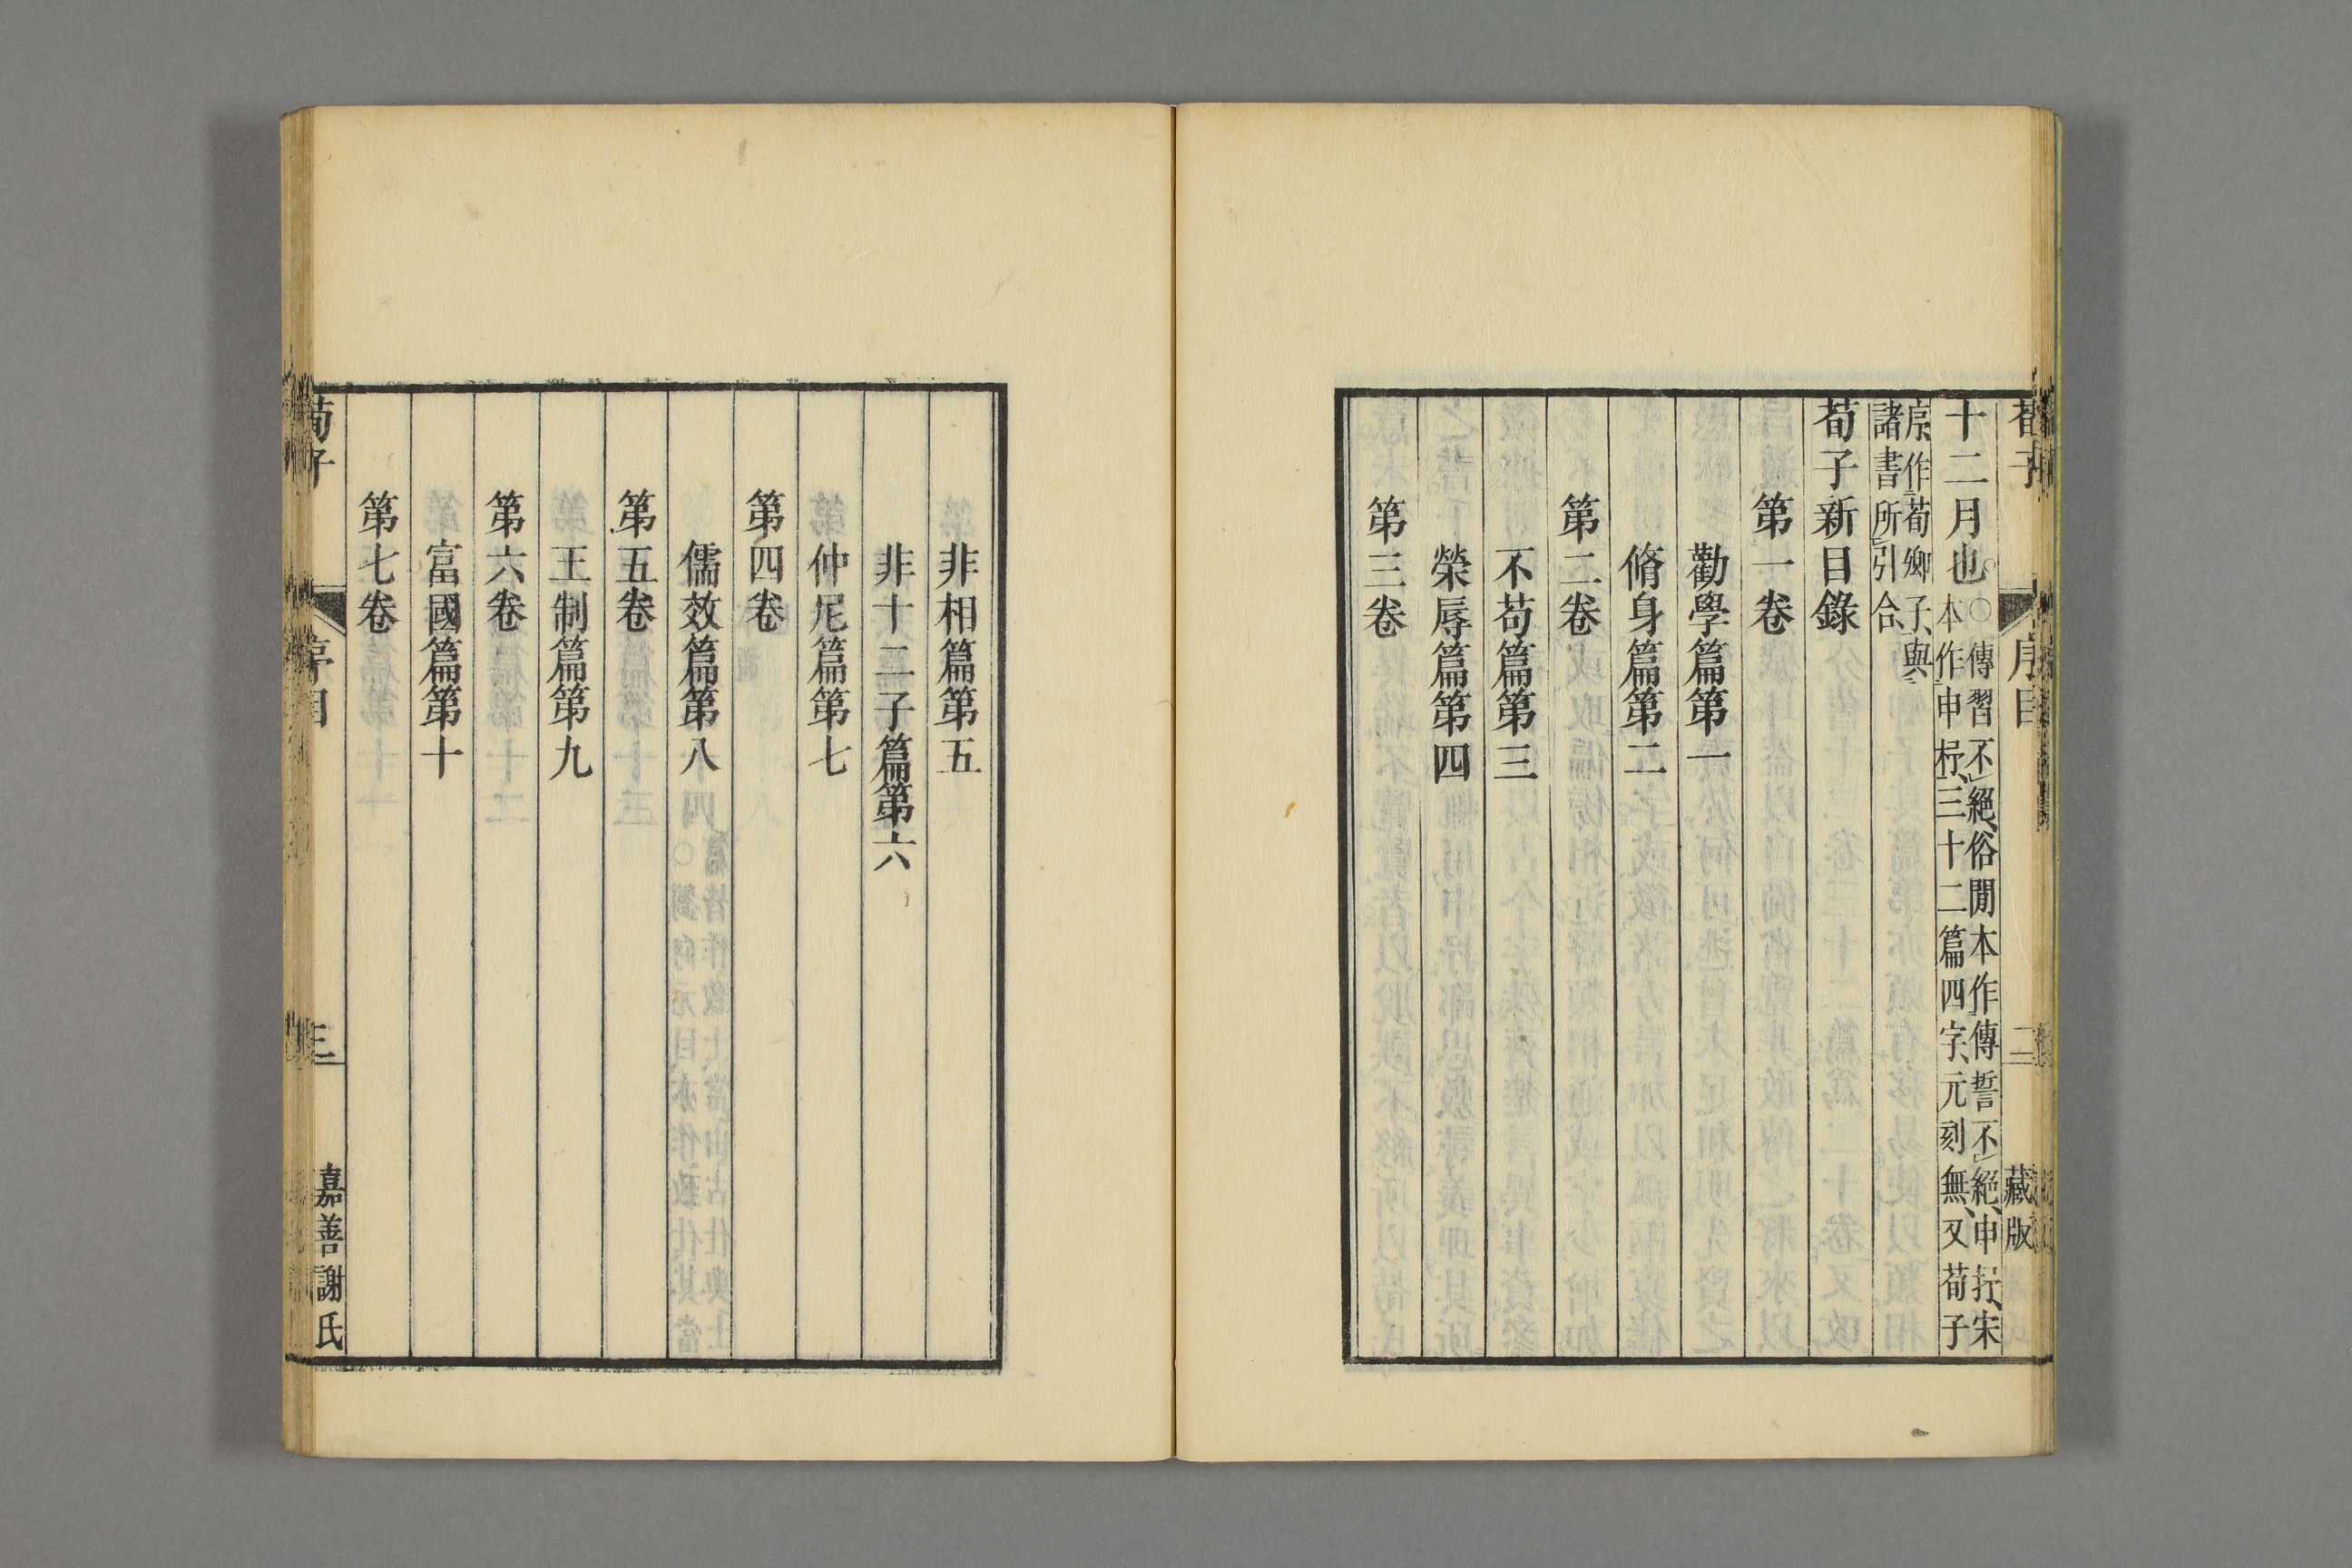 荀子
序目
二
藏版
十二月也○傳習不絕俗閒本作傳誓不絕申抒宋
本作申杼三十二篇四字元刻無又荀子
序作荀卿子與
諸書所引合
荀子新目錄
第一卷
勸學篇第一
脩身篇第二
第二卷
不苟篇第三
榮辱篇第四
第三卷
非相篇第五
非十二子篇第六
仲尼篇第七
第四卷
儒效篇第八
第五卷
王制篇第九
第六卷
富國篇第十
第七卷
荀子
序目
三
嘉善謝氏